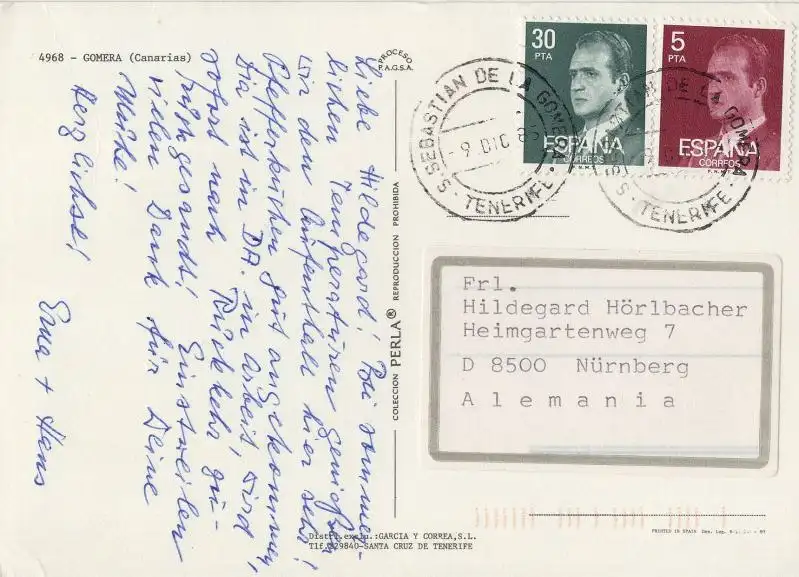 4968 - GOMERA (Canarias)
PROCESO
P.A.G.S.A.
Liebe Hildegard! Bei sommer-
lichen Temperaturen genießen
wir den Aufenthalt hier sehr!
Pfefferkuchen gut angekommen,
Dia ist in DA. in Arbeit, wird
sofort nach Rückkehr zu-
rückgesandt! Einstweilen
vielen Dank für Deine
Mühe!
Herzlichst!
Erna + Hans
COLECCION PERLA® REPRODUCCION PROHIBIDA
30
PTA
ESPAÑA
CORREOS
F.N.M.T.
5
PTA
ESPAÑA
CORREOS
S. SEBASTIAN DE LA GOMERA
- 9 DIC 85
- TENERIFE -
GOMERA
- TENERIFE -
Frl.
Hildegard Hörlbacher
Heimgartenweg 7
D 8500 Nürnberg
Alemania
Distri. exclu.:GARCIA Y CORREA,S.L.
Tlf. 229840-SANTA CRUZ DE TENERIFE
PRINTED IN SPAIN Dep. Leg.